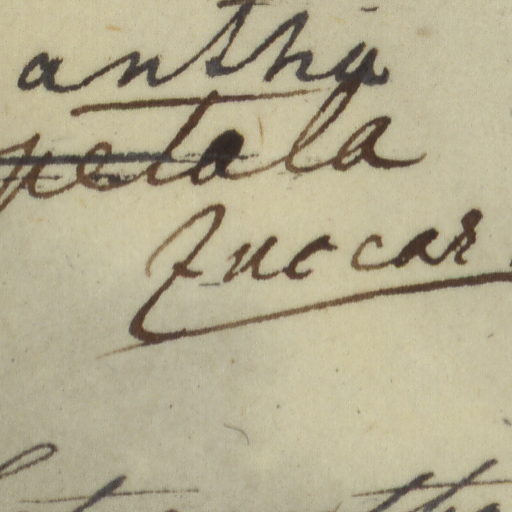 antha
petala
Zuccar